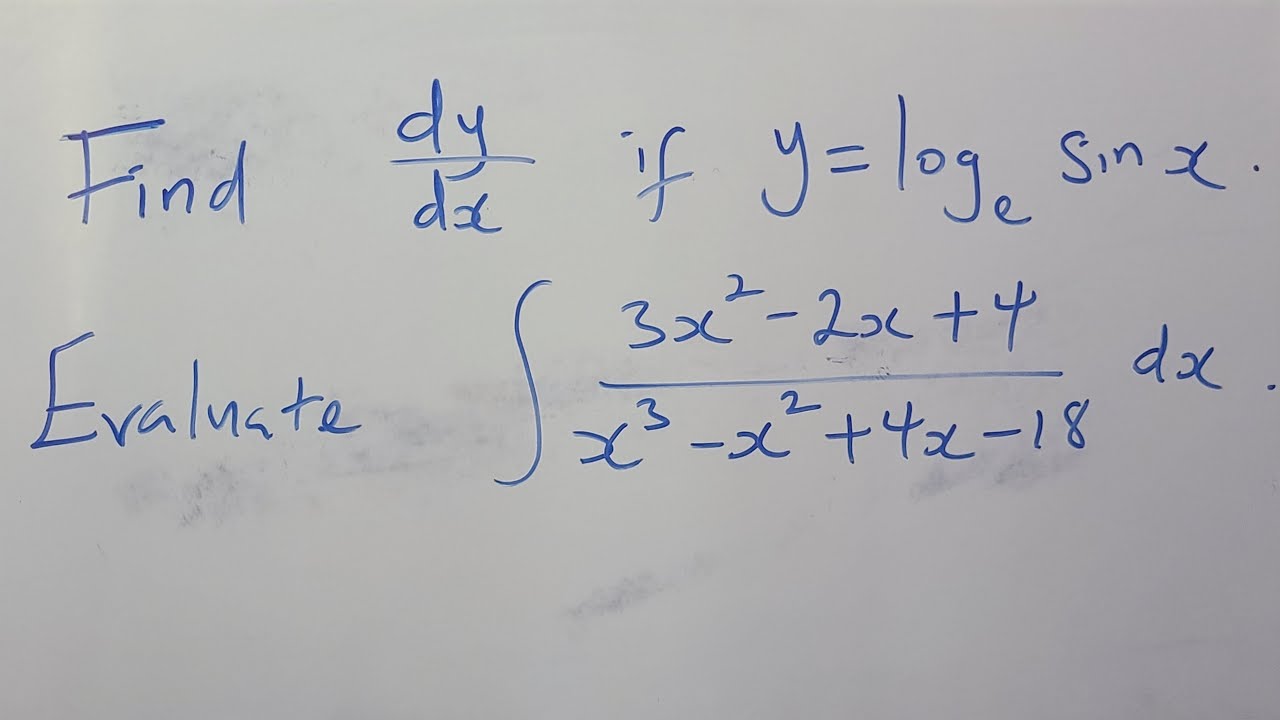 Find dy/dx if y = logₑ sin x.
Evaluate ∫ (3x² - 2x + 4)/(x³ - x² + 4x - 18) dx.